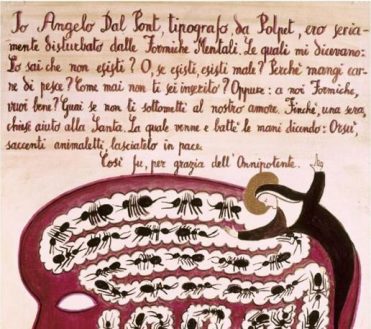 Io Angelo Dal Pont, tipografo, da Polpet, ero seria-
mente disturbato dalle Formiche Mentali. Le quali mi dicevano:
Lo sai che non esisti? O, se esisti, esisti male? Perchè mangi car-
ne di pesce? Come mai non ti sei inserito? Oppure: a noi Formiche,
vuoi bene? Guai se non ti sottometti al nostro amore. Finchè, una sera,
chiesi aiuto alla Santa. La quale venne e battè le mani dicendo: Orsù,
saccenti animaletti, lasciatelo in pace.
Così fu, per grazia dell'Onnipotente.